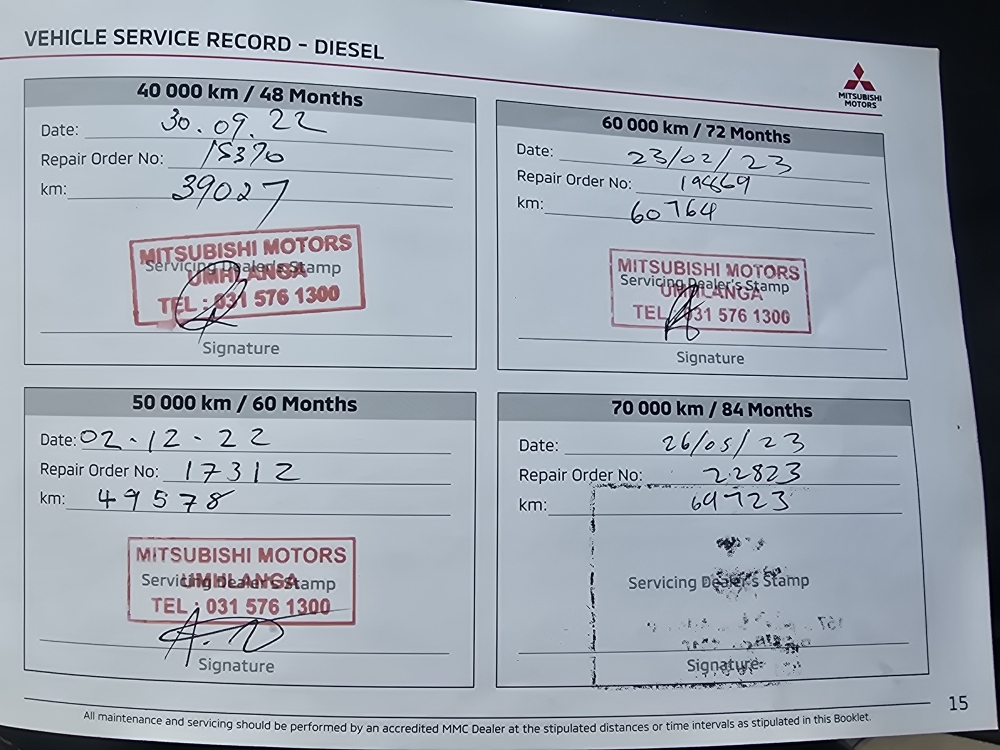 VEHICLE SERVICE RECORD - DIESEL
MITSUBISHI
MOTORS
40 000 km / 48 Months
Date: 30.09.22
Repair Order No: 15370
km: 39027
MITSUBISHI MOTORS
Servicing Dealer's Stamp
UMHLANGA
TEL : 031 576 1300
Signature
60 000 km / 72 Months
Date: 23/02/23
Repair Order No: 19869
km: 60764
MITSUBISHI MOTORS
Servicing Dealer's Stamp
UMHLANGA
TEL : 031 576 1300
Signature
50 000 km / 60 Months
Date: 02-12-22
Repair Order No: 17312
km: 49578
MITSUBISHI MOTORS
Servicing Dealer's Stamp
UMHLANGA
TEL : 031 576 1300
Signature
70 000 km / 84 Months
Date: 26/05/23
Repair Order No: 22823
km: 69723
Servicing Dealer's Stamp
Signature
All maintenance and servicing should be performed by an accredited MMC Dealer at the stipulated distances or time intervals as stipulated in this Booklet.
15